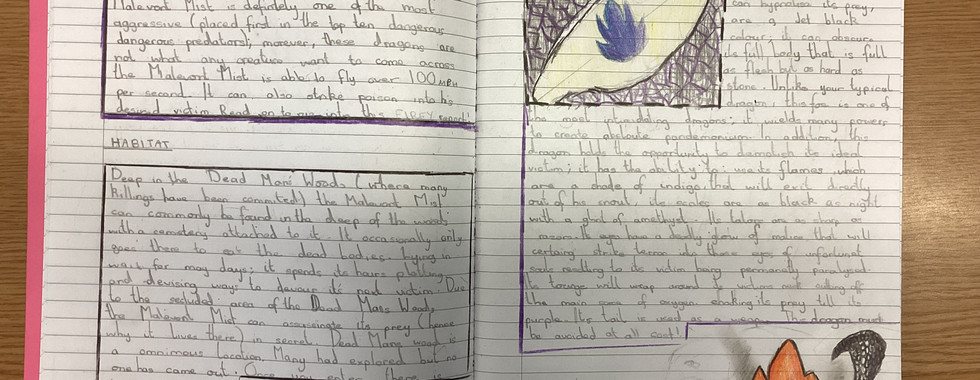 Malevort Mist is definetly one of the most
aggressive (placed first in the top ten dangerous
dangerous predators), morever, these dragons are
not what any creature want to come across
the Malevort Mist is able to fly over 100mph
per second. It can also strike poison into his
desired victim. Read on to run into this FIREY report!
HABITAT
Deep in the Dead Mans' Woods (where many
killings have been commited) the Malevort Mist
can commonly be found in the deep of the woods
with a cemetery attached to it. It occasionally only
goes there to eat the dead bodies. Lying in
wait for may days; it spends its hours plotting
and devising ways to devour it's past victim. Due
to the secluded area of the Dead Mans Woods,
the Malevort Mist can assassinate its prey (hence
why it lives there) in secret. Dead Mans woods is
a omnimous location. Many had explored but no
one has came out. Once you enter, there is
can hypnotise its prey,
are a Jet black
colour; it can obscure
its full body that is full
as flesh but as hard as
stone. Unlike your typical
dragon, this foe is one of
the most intimidating dragons; it wields many powers
to create absloute pandemonium. In addition, this
dragon holds the opportunity to demolish its ideal
victim; it has the ability to flames, which
are a shade of indigo, that will exit directly
out of his snout, its scales are as black as night
with a glint of amethyst. Its talons are as sharp as
razors. Its eyes have a deadly of malice that will
certainly strike terror into those eyes of unfortunate
souls resulting to its victim being permanently paralysed.
Its tounge will wrap around its victims neck cutting off
the main source of oxygen shaking its prey till its
purple. Its tail is used as a weapon. The dragon must
be avoided at all cost!